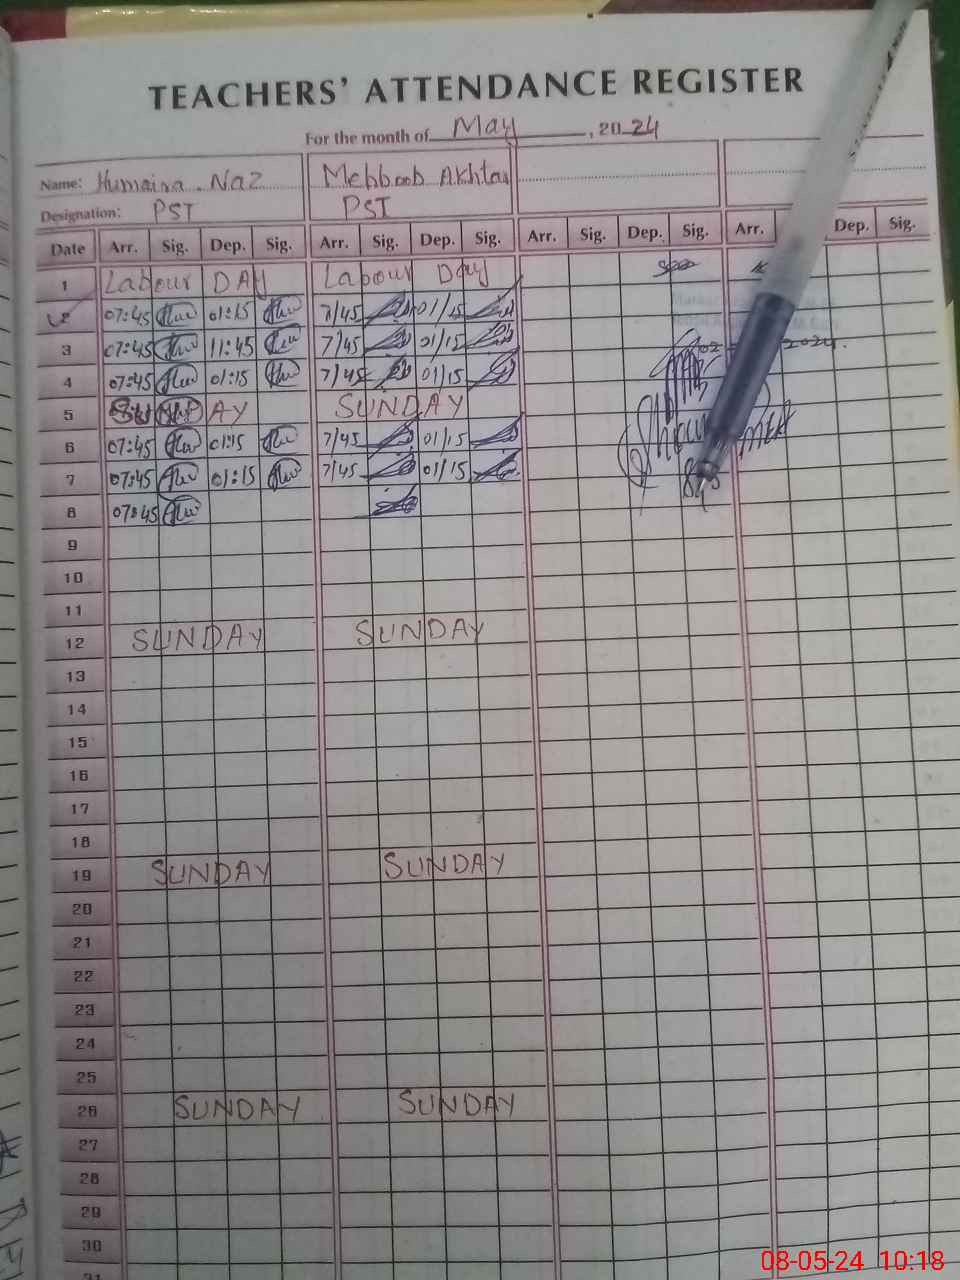 TEACHERS' ATTENDANCE REGISTER
For the month of May, 2024
Name: Humaira. Naz Mehboob Akhtar
Designation: PST PST
Date Arr. Sig. Dep. Sig. Arr. Sig. Dep. Sig. Arr. Sig. Dep. Sig. Arr. Dep. Sig.
1 Labour DAY Labour Day
2 07:45 01:15 7/45 01/15
3 07:45 11:45 7/45 01/15
4 07:45 01:15 7/45 01/15
5 SUNDAY SUNDAY
6 07:45 01:15 7/45 01/15
7 07:45 01:15 7/45 01/15
8 07:45
9
10
11
12 SUNDAY SUNDAY
13
14
15
16
17
18
19 SUNDAY SUNDAY
20
21
22
23
24
25
26 SUNDAY SUNDAY
27
28
29
30
31
08-05-24 10:18